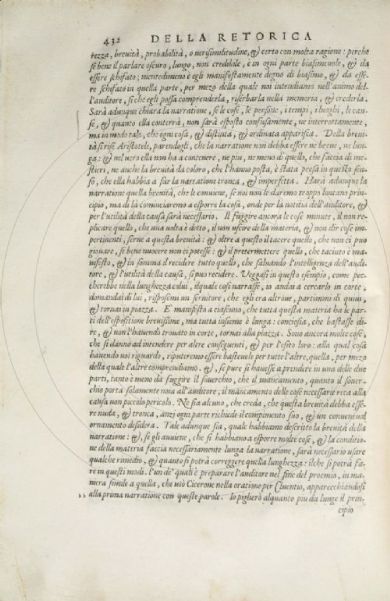 432 DELLA RETORICA
rezza, brevità, probabilità, o verisimilitudine, & certo con molta ragione: perche
se bene il parlare oscuro, lungo, non credibile, è in ogni parte biasimevole, & da
essere schifato; nientedimeno è egli manifestamente degno di biasimo, & da esse
re schifato in quella parte, per mezo della quale noi intendiamo nell'animo del
l'auditore, si che egli possa comprenderla, riserbarla nella memoria, & crederla.
Sarà adunque chiara la narratione, se le cose, le persone, i tempi, i luoghi, le cau
se, & quanto ella conterrà, non sarà esposto confusamente, ne interrottamente,
ma in modo tale, che ogni cosa, & distinta, & ordinata apparisca. Della brevi
tà scrisse Aristotele, parendogli, che la narratione non debba essere ne breve, ne lun
ga: & nel vero ella non ha a contenere, ne piu, ne meno di quello, che faccia di me
stieri, ne anche la brevità da coloro, che l'hanno posta, è stata presa in questo sen
so, che ella habbia a far la narratione tronca, & imperfetta. Sarà adunque la
narratione quella brevità, che le conviene, se noi non le daremo troppo lontano prin
cipio, ma da là cominciaremo a esporre la cosa, onde per la notitia dell'auditore, &
per l'utilità della causa sarà necessario. Il fuggire ancora le cose minute, il non re
plicare quello, che una volta è detto, il non uscire della materia, & non dir cose im
pertinenti, serve a questa brevità: & oltre a questo il tacere quello, che non ci può
giovare, se bene nuocere non ci potesse: & il pretermettere quello, che taciuto è ma
nifesto, & in somma il recidere tutto quello, che salvando l'intelligenza dell'audi
tore, & l'utilità della causa, si può recidere. Veggasi in questo esempio, come pec
cherebbe nella lunghezza colui, il quale così narrasse, io andai a cercarlo in corte,
domandai di lui, risposemi un servitore, che egli era altrove, partimmi di quivi,
& tornai in piazza. E manifesto a ciascuno, che tutta questa materia ha le par
ti dell'espositione brevissime, ma tutta insieme è lunga: conciosia, che bastasse di
re, & non l'havendo trovato in corte, tornai alla piazza. Sono ancora molte cose,
che si danno ad intendere per altre conseguenti, & per l'esito loro: alla qual cosa
havendo noi riguardo, riputeremo essere bastevole per tutte l'altre, quella, per mezo
della quale l'altre comprendiamo. &, se pure si havesse a prendere in una delle due
parti, tanto è meno da fuggire il soverchio, che il mancamento, quanto il sover
chio porta solamente noia all'auditore; il mancamento delle cose necessarie reca alla
causa non piccolo pericolo. Ne sia alcuno, che creda, che questa brevità debba esse
re nuda, & tronca, anzi ogni parte richiede il compimento suo, & un convenevol
ornamento desidera. Tale adunque sia, quale habbiamo descritto la brevità della
narratione: &, se gli avviene, che si habbiano a esporre molte cose, & la conditio
ne della materia faccia necessariamente lunga la narratione, sarà necessario usare
qualche rimedio, & quanto si potrà correggere quella lunghezza: ilche si potrà fa
re in questi modi. l'un de' quali è preparare l'auditore nel fine del proemio, in ma
niera simile a quella, che usò Cicerone nella oratione per Cluentio, apparecchiandosi
alla prima narratione con queste parole. Io piglierò alquanto piu da lungo il prin
cipio